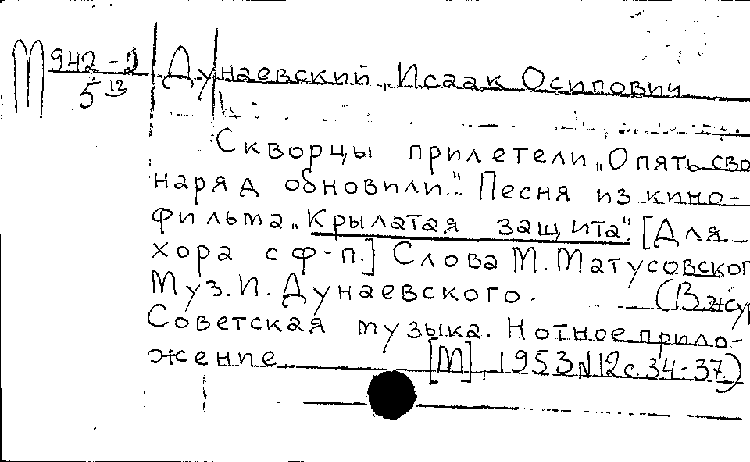 М 942-2 Дунаевский, Исаак Осипович
5 12
Скворцы прилетели „Опять сво
наряд обновили". Песня из кино-
фильма „Крылатая защита". [Для
хора с ф-п.] Слова М. Матусовског
Муз. И. Дунаевского. (В жур
Советская музыка. Нотное прило-
жение [М], 1953 N12 с. 34-37)